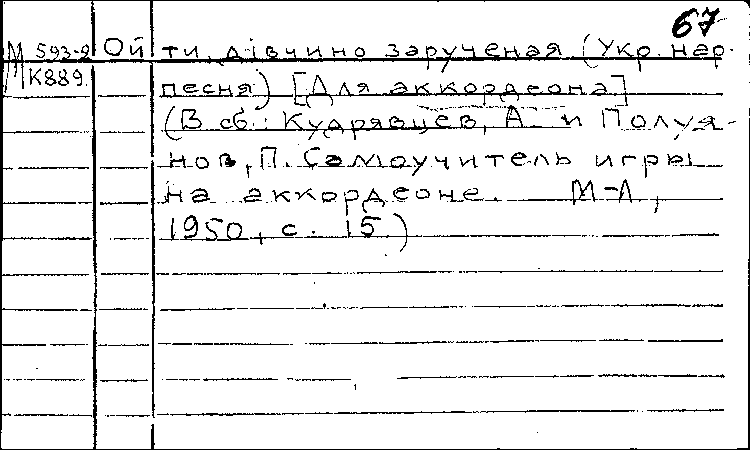 67
М 593-2 Ой ти, дівчино зарученая (Укр. нар.
К889 песня) [Для аккордеона]
(В сб.: Кудрявцев, А. и Полуя-
нов, П. Самоучитель игры
на аккордеоне. М-Л,
1950, с. 15.)